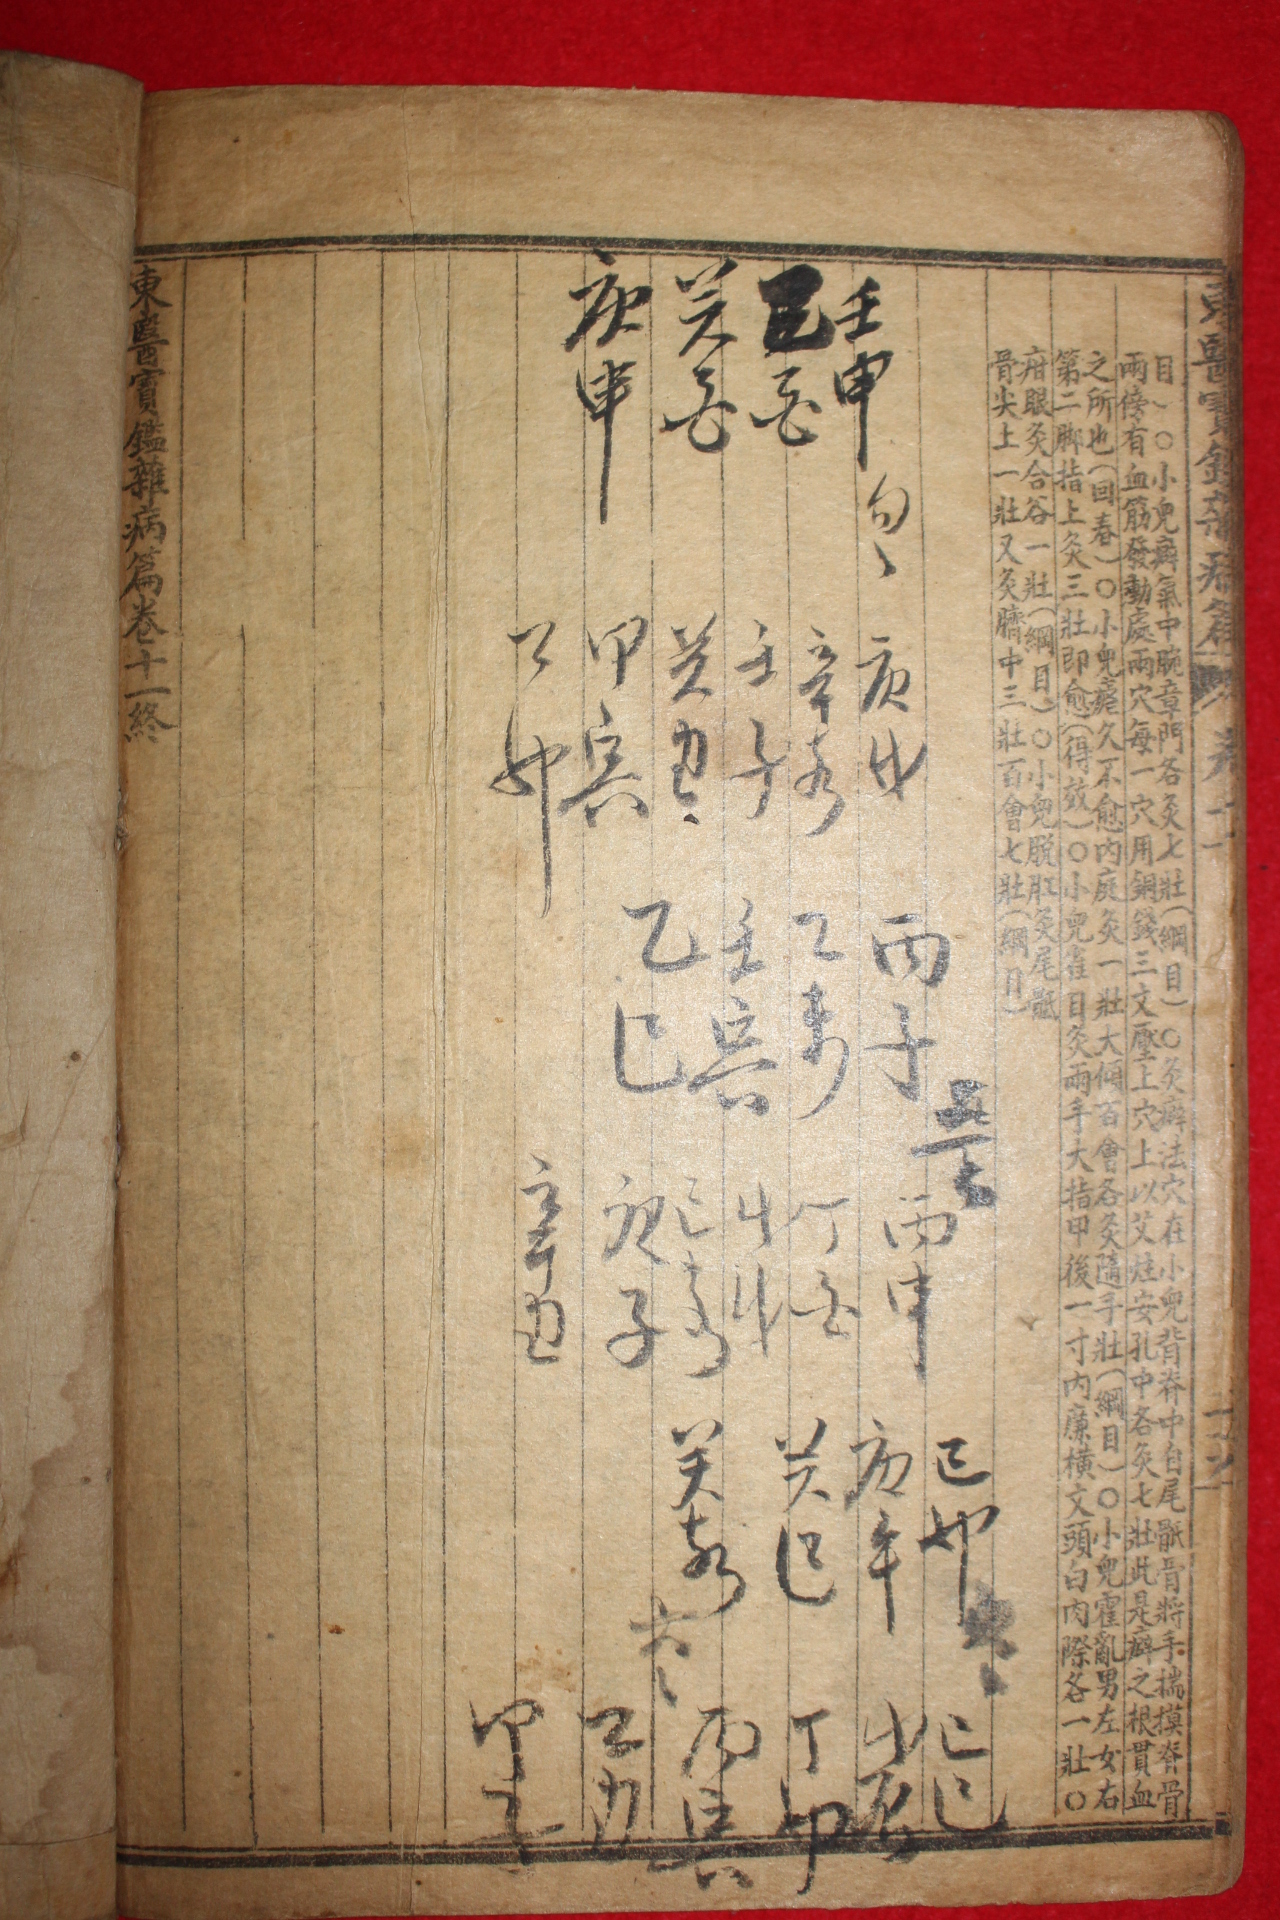 東醫寶鑑雜病篇 卷十一
目)○小兒癖氣中脘章門各灸七壯(綱目)○灸癖法穴在小兒背脊中自尾骶骨將手揣摸脊骨
兩傍有血筋發動處兩穴每一穴用銅錢三文壓上穴上以艾炷安孔中各灸七壯此是癖之根貫血
之所也(回春)○小兒瘧久不愈內庭灸一壯大傾百會各灸隨手壯(綱目)○小兒霍亂男左女右
第二脚指上灸三壯即愈(得效)○小兒雀目灸兩手大指甲後一寸內廉橫文頭白肉際各一壯○
疳眼灸合谷一壯(綱目)○小兒脫肛灸尾骶
骨尖上一壯又灸臍中三壯百會七壯(綱目)
壬申
己酉
癸酉
庚申
庚戌
辛亥
壬子
癸丑
甲寅
乙卯
丙子
乙巳
丙申
丁酉
戊戌
己亥
庚子
辛丑
己卯
庚午
癸巳
癸亥
己巳
戊辰
丁卯
丙寅
乙丑
甲子
東醫寶鑑雜病篇卷十一終